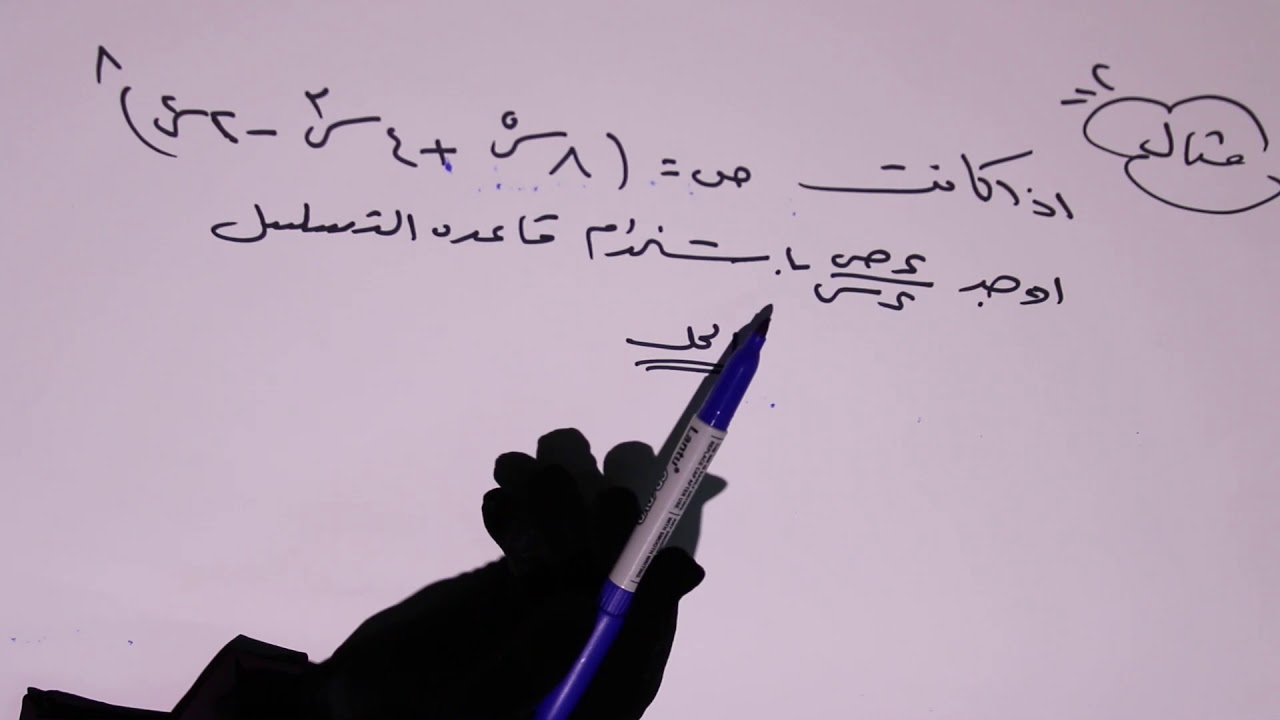 مثال ٢ =
اذا كانت ص = (٨س^٥ + ٤س^٢ − ٢س^٤)^٨
اوجد ءص/ءس باستخدام قاعده التسلسل
لحل
Lantu